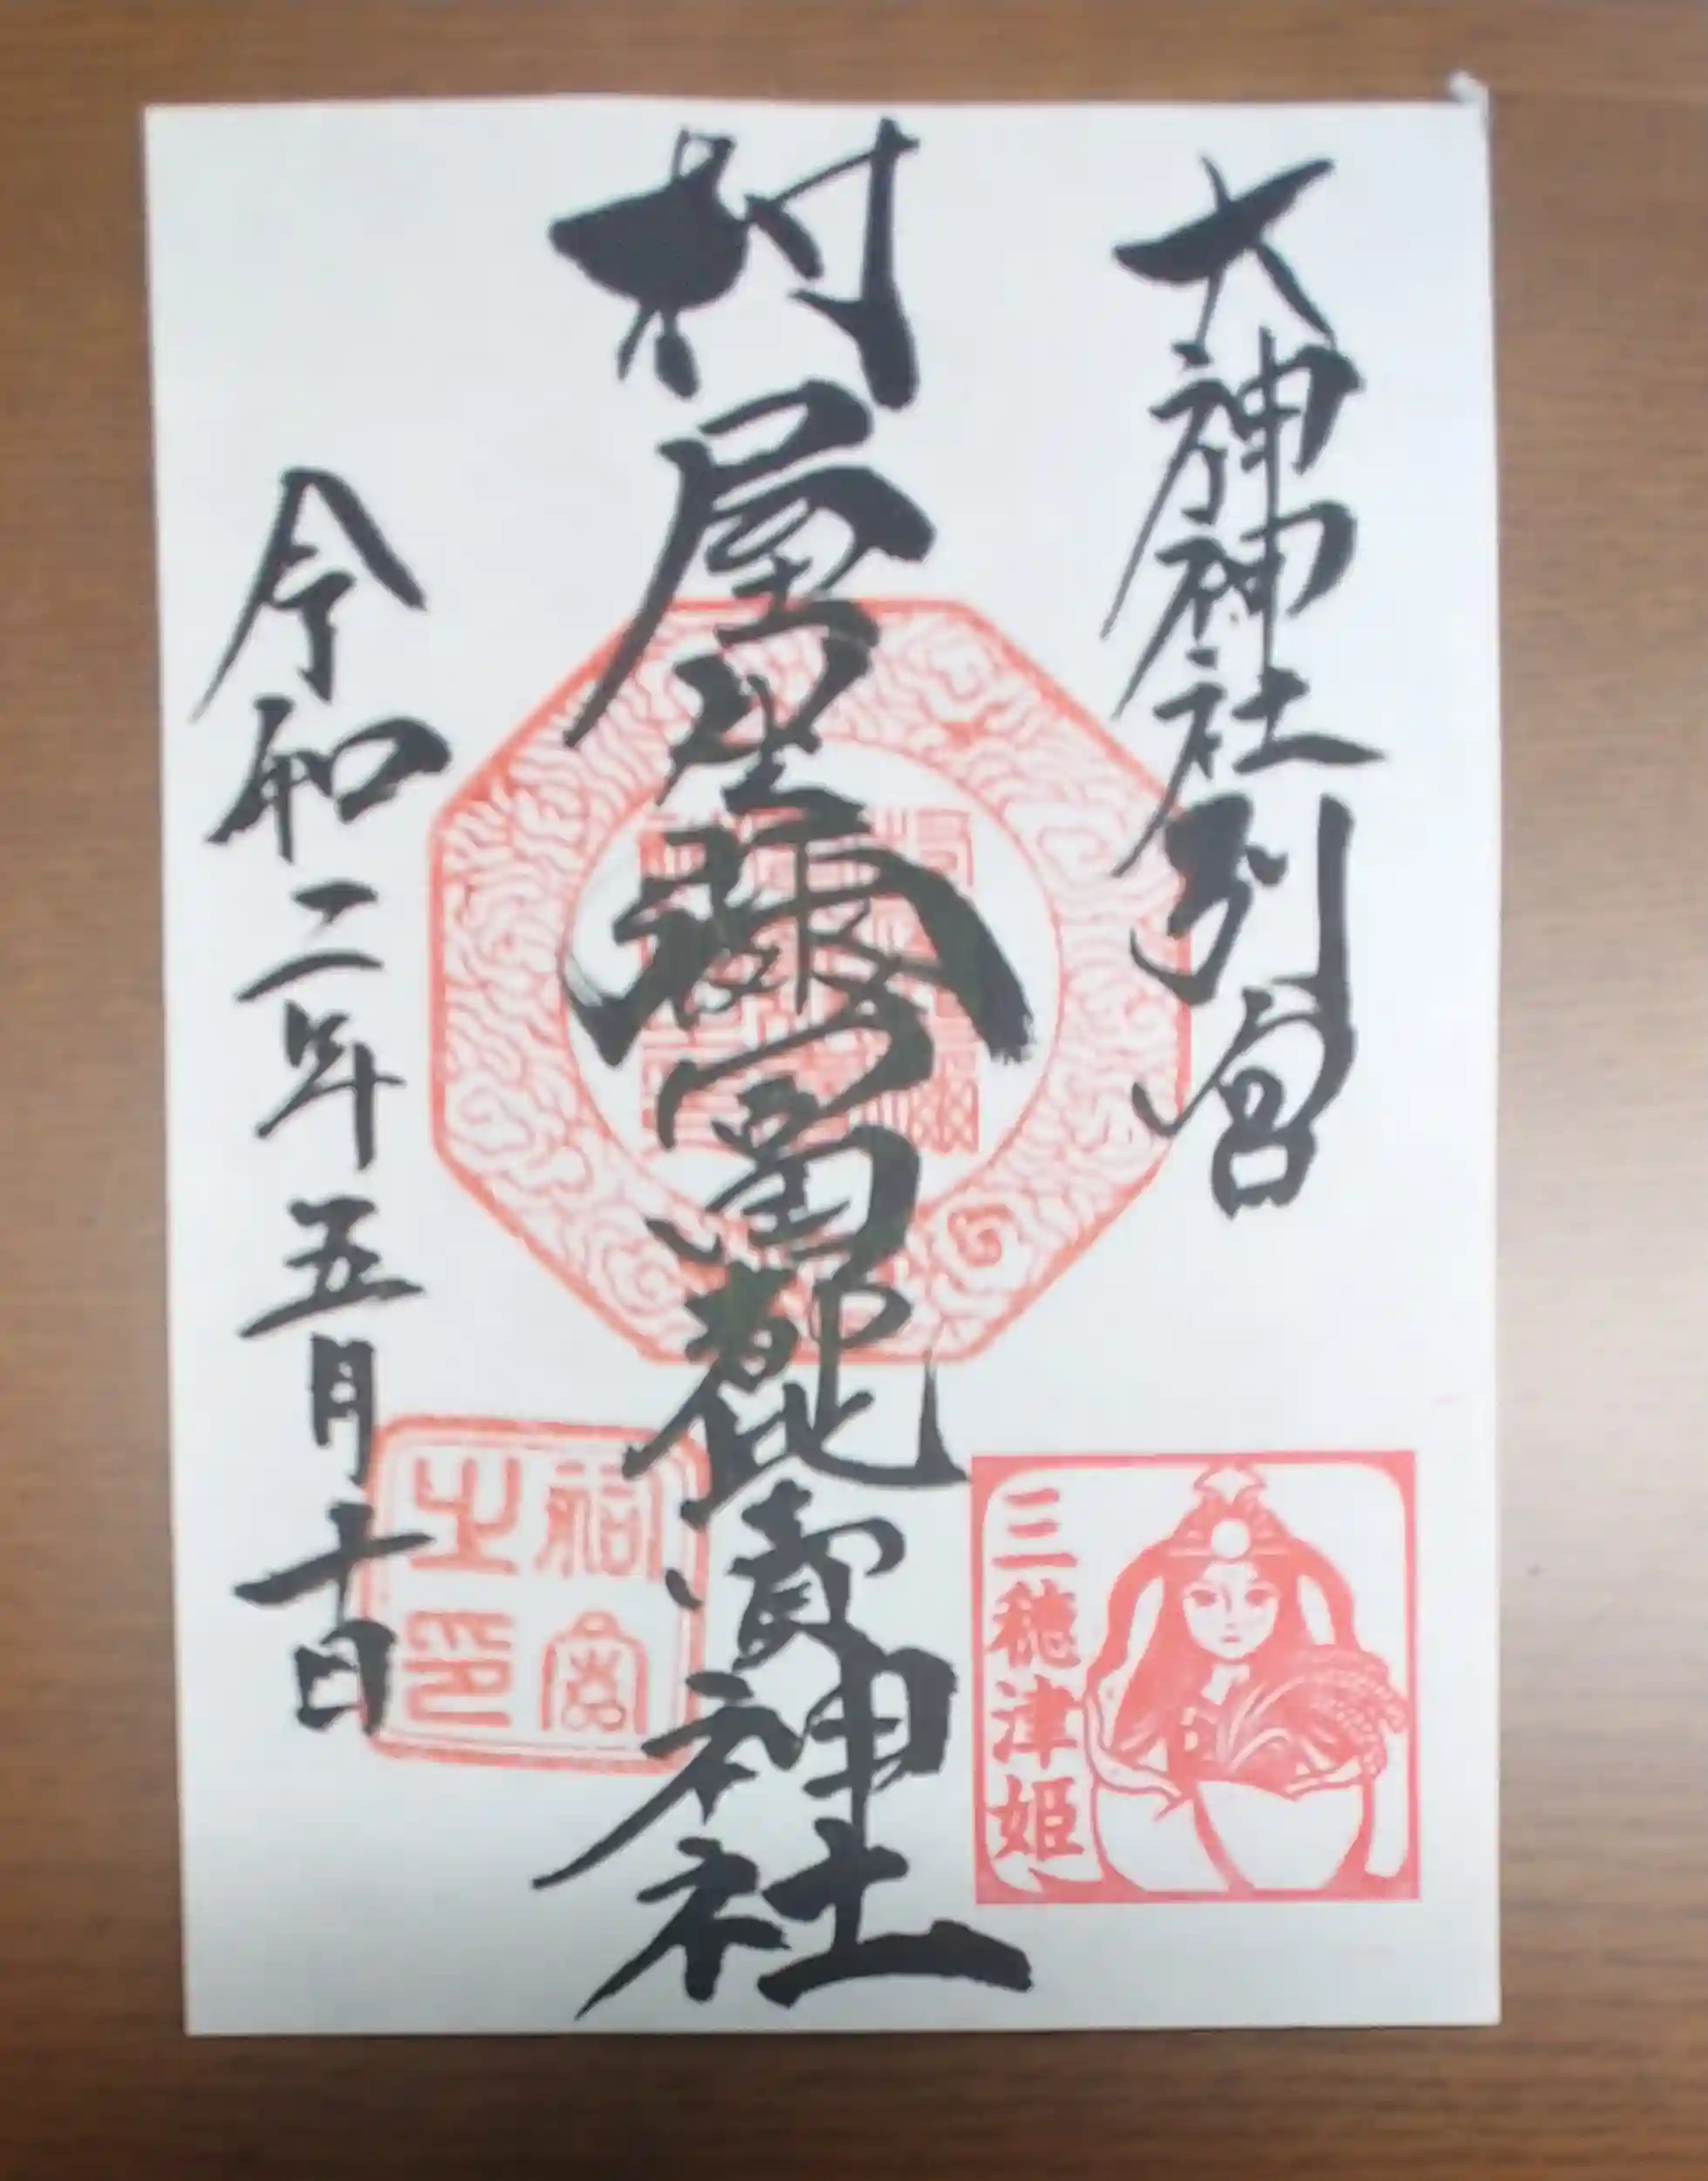 大神神社別宮
村屋坐彌冨都比賣神社
三穂津姫
令和二年五月十日
祠宮之印